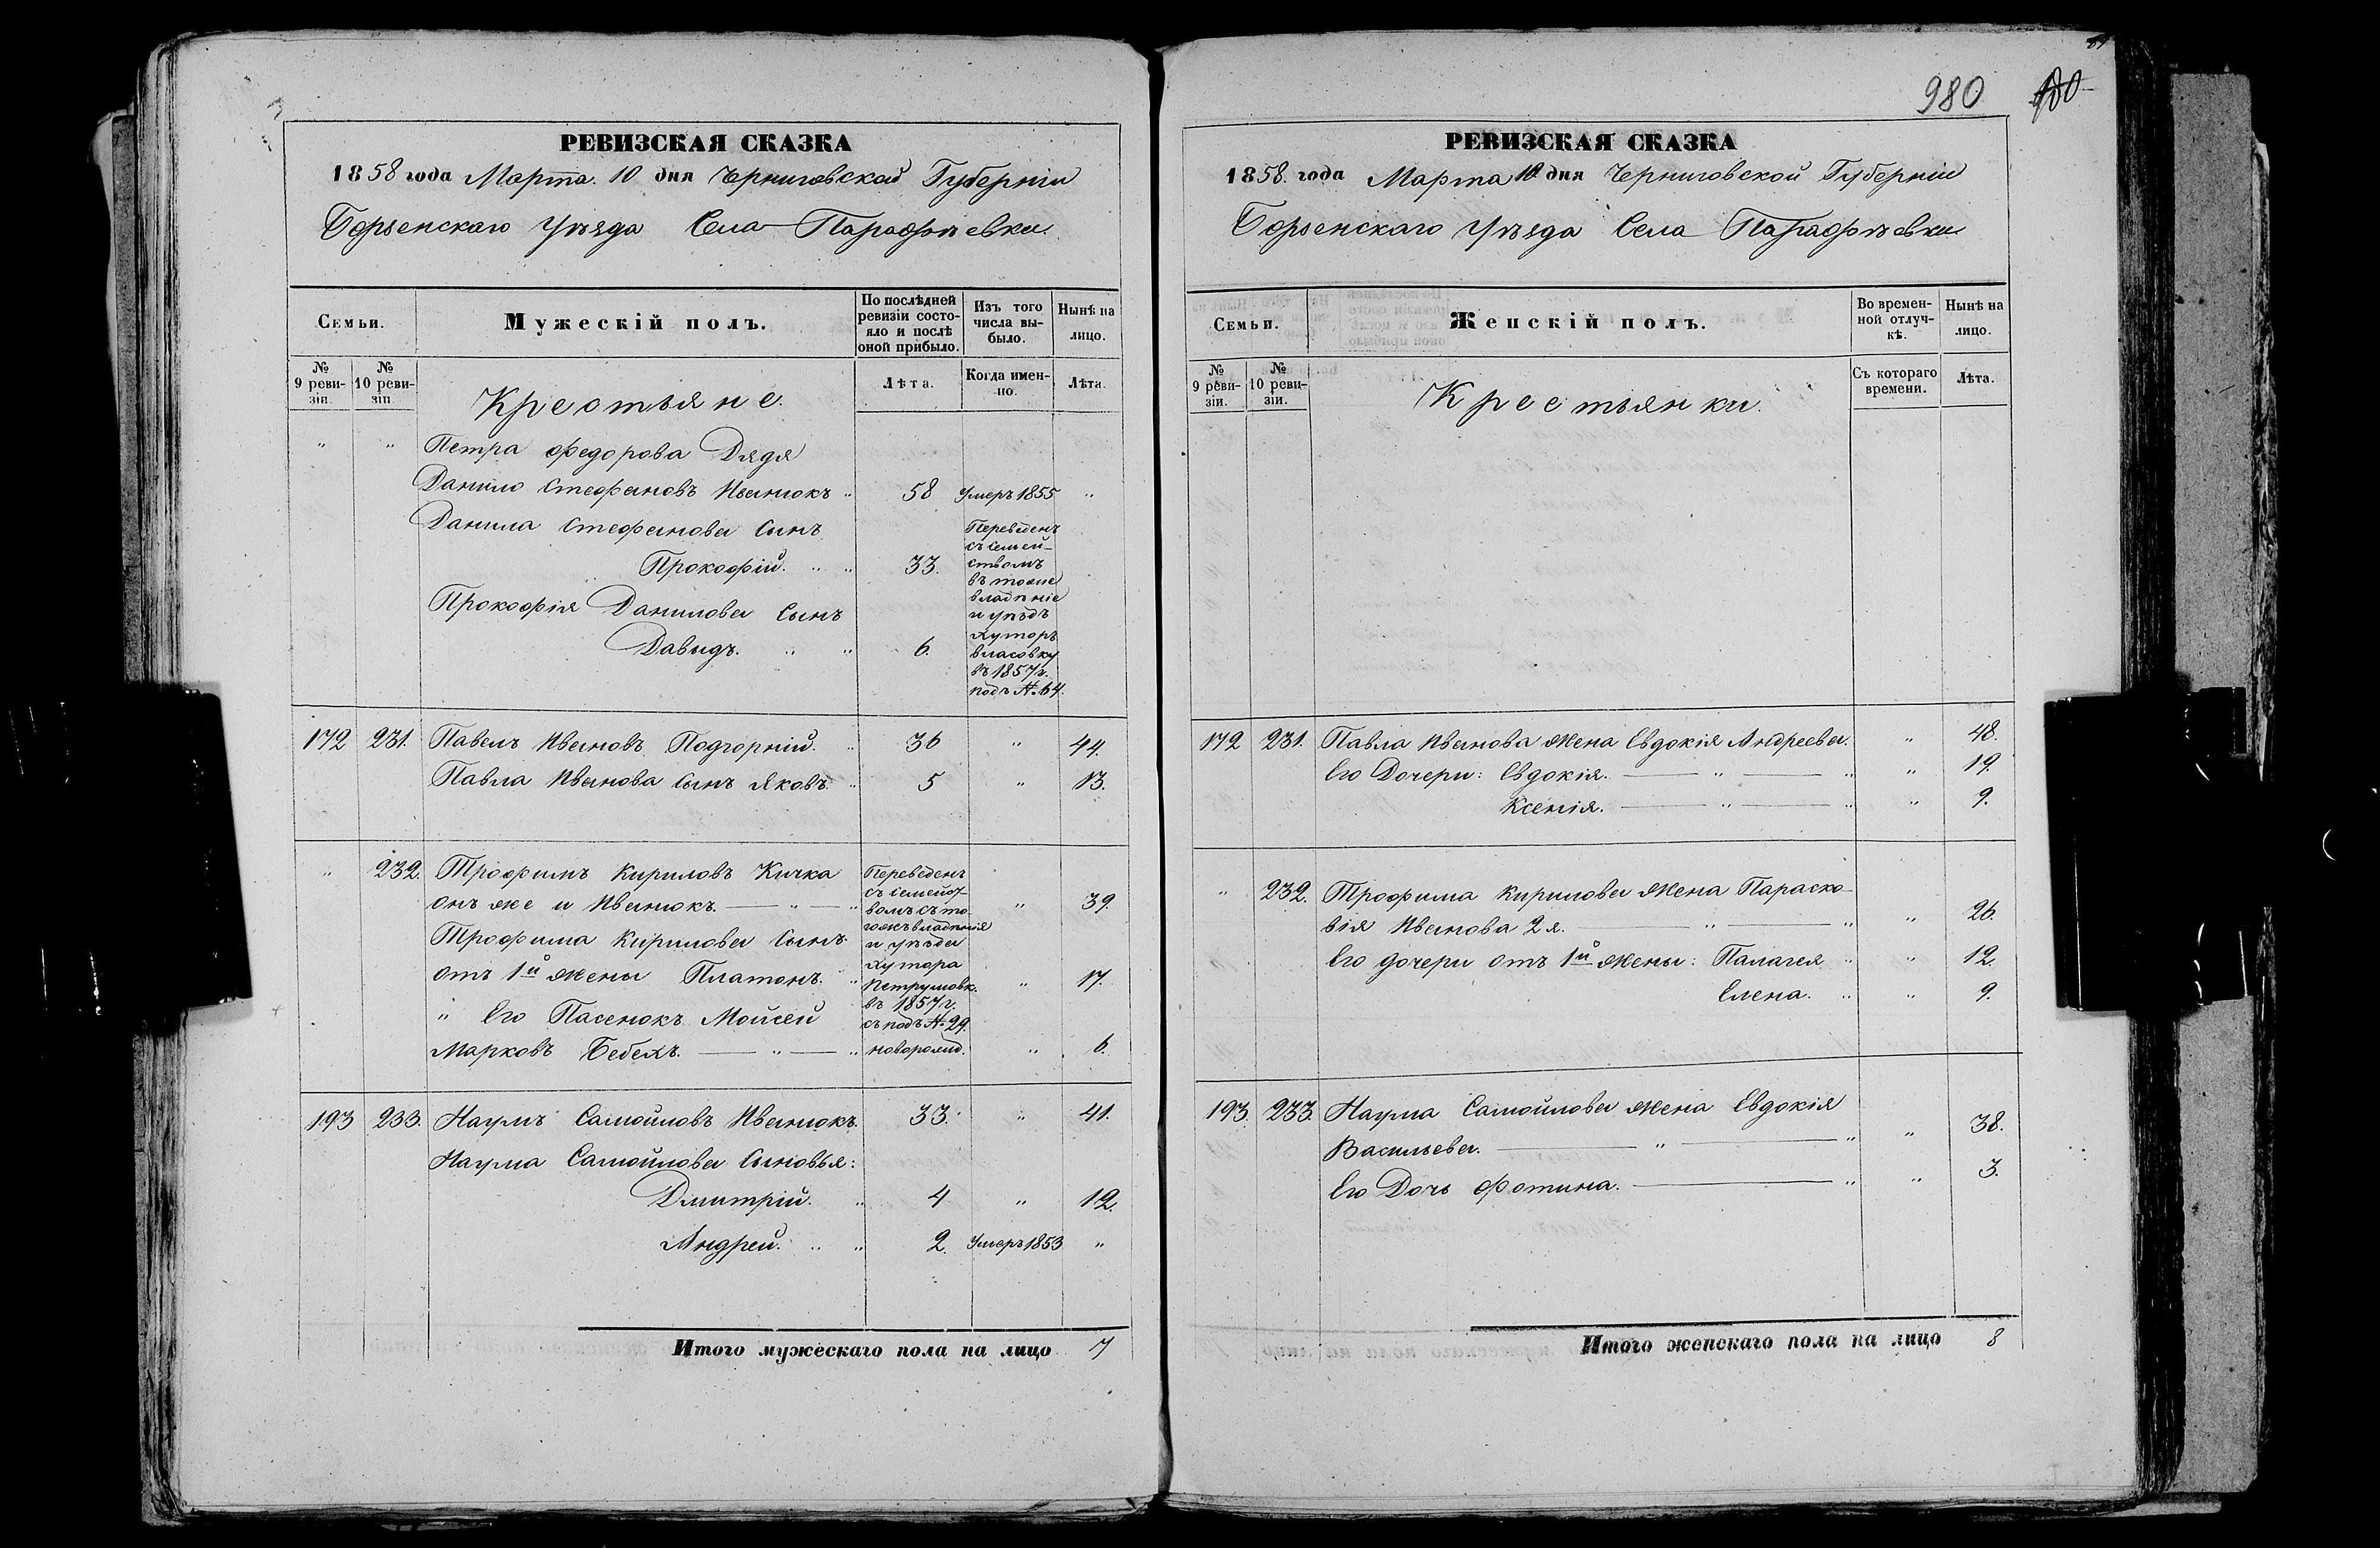 РЕВИЗСКАЯ СКАЗКА
1858 года Марта 10 дня Черниговской Губерніи
Борзенскаго Уѣзда Села Парафѣевки
Семьи.
Мужескій полъ.
По послѣдней ревизіи состояло и послѣ оной прибыло.
Изъ того числа выбыло.
Нынѣ на лицо.
№ 9 ревизіи.
№ 10 ревизіи.
Крестьяне.
Лѣта.
Когда именно.
Лѣта.
" " Петра Федорова Дядя
Данило Стефановъ Иванюкъ " 58 Умеръ 1855 "
Данила Стефанова Сынъ
Прокофій. " " 33.
Прокофія Данилова Сынъ
Давыдъ. " " 6.
Переведенъ
съ семей-
ствомъ
въ тоже
владѣніе
и уѣздъ
хуторъ
Власовку
въ 1857 г.
подъ № 64.
172 231. Павелъ Ивановъ Подгорній. " 36 " 44.
Павла Иванова Сынъ Яковъ. " 5 " 13.
" 232. Трофимъ Кириловъ Кичка
онъ же и Иванюкъ. — " — " " 39.
Трофима Кирилова Сынъ
отъ 1й жены Платонъ. " " 17.
Переведенъ
съ семейст-
вомъ съ то-
гожъ владѣнія
и уѣзда
хутора
Петрушовк.
въ 1857 г.
съ подъ № 29.
" Его Пасенокъ Мойсей
Марковъ Бебехъ. — " — " новорожд. " 6.
193 233. Наумъ Самойловъ Иванюкъ. 33. " 41.
Наума Самойлова Сыновья:
Дмитрій. " 4 " 12.
Андрей. " " 2. Умеръ 1853 "
Итого мужескаго пола на лицо 7
980
РЕВИЗСКАЯ СКАЗКА
1858. года Марта 10 дня Черниговской Губерніи
Борзенскаго Уѣзда Села Парафѣевки
Семьи.
Женскій полъ.
Во временной отлучкѣ.
Нынѣ на лицо.
№ 9 ревизіи.
№ 10 ревизіи.
Крестьянки.
Съ котораго времени.
Лѣта.
172 231. Павла Иванова жена Евдокія Андреева. " 48.
Его Дочери: Евдокія. — " — " " 19.
Ксенія. — " — " " 9.
" 232. Трофима Кирилова жена Параско-
вія Иванова 2я. — " — " " 26.
Его дочери отъ 1й жены: Палагея " " 12.
Елена. " " 9.
193. 233. Наума Самойлова жена Евдокія
Васильева. — " — " " 38.
Его Дочь Фотина. — " " 3.
Итого женскаго пола на лицо 8